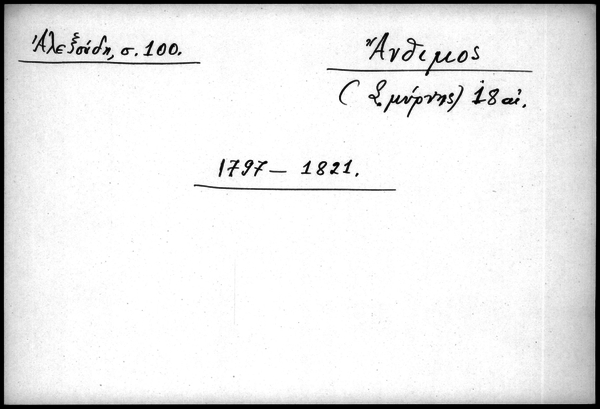 Ἀλεξούδη, σ. 100.
Ἄνθιμος
(Σμύρνης) 18 αἰ.
1797 – 1821.